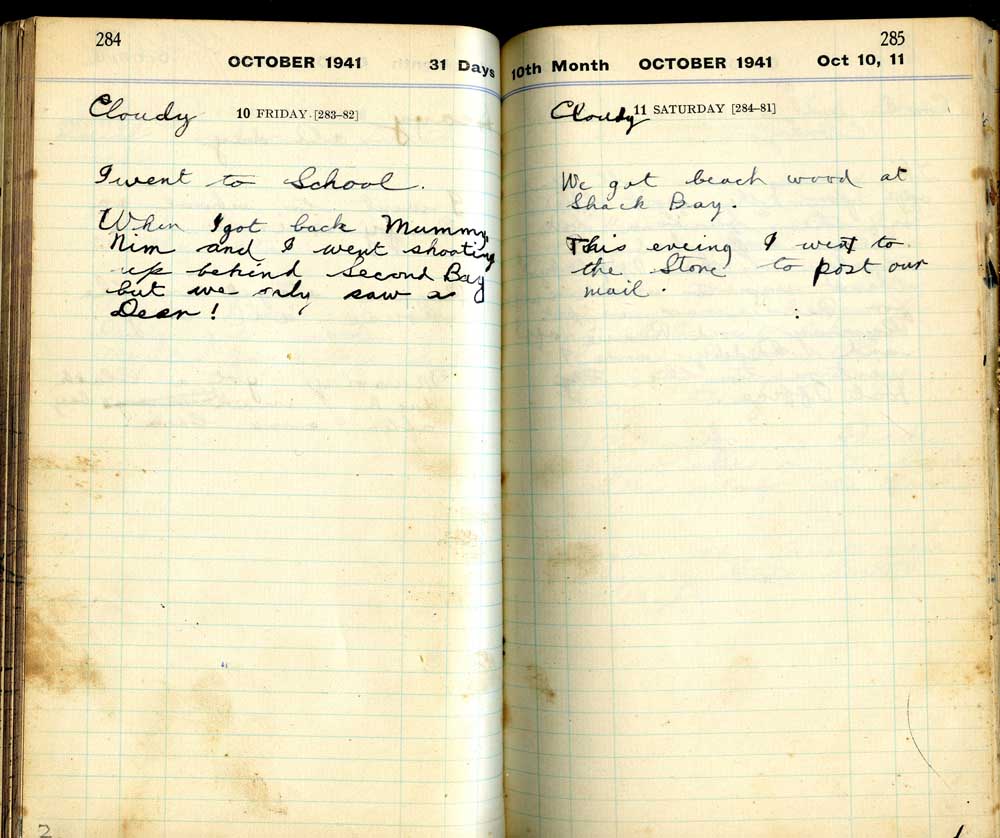 284
OCTOBER 1941 31 Days
Cloudy 10 FRIDAY [283–82]
I went to School.
When I got back Mummy,
Nim and I went shooting
up behind Second Bay
but we only saw a
Deer!
285
10th Month OCTOBER 1941 Oct 10, 11
Cloudy 11 SATURDAY [284–81]
We got beach wood at
Shack Bay.
This eveing I went to
the Store to post our
mail.
2